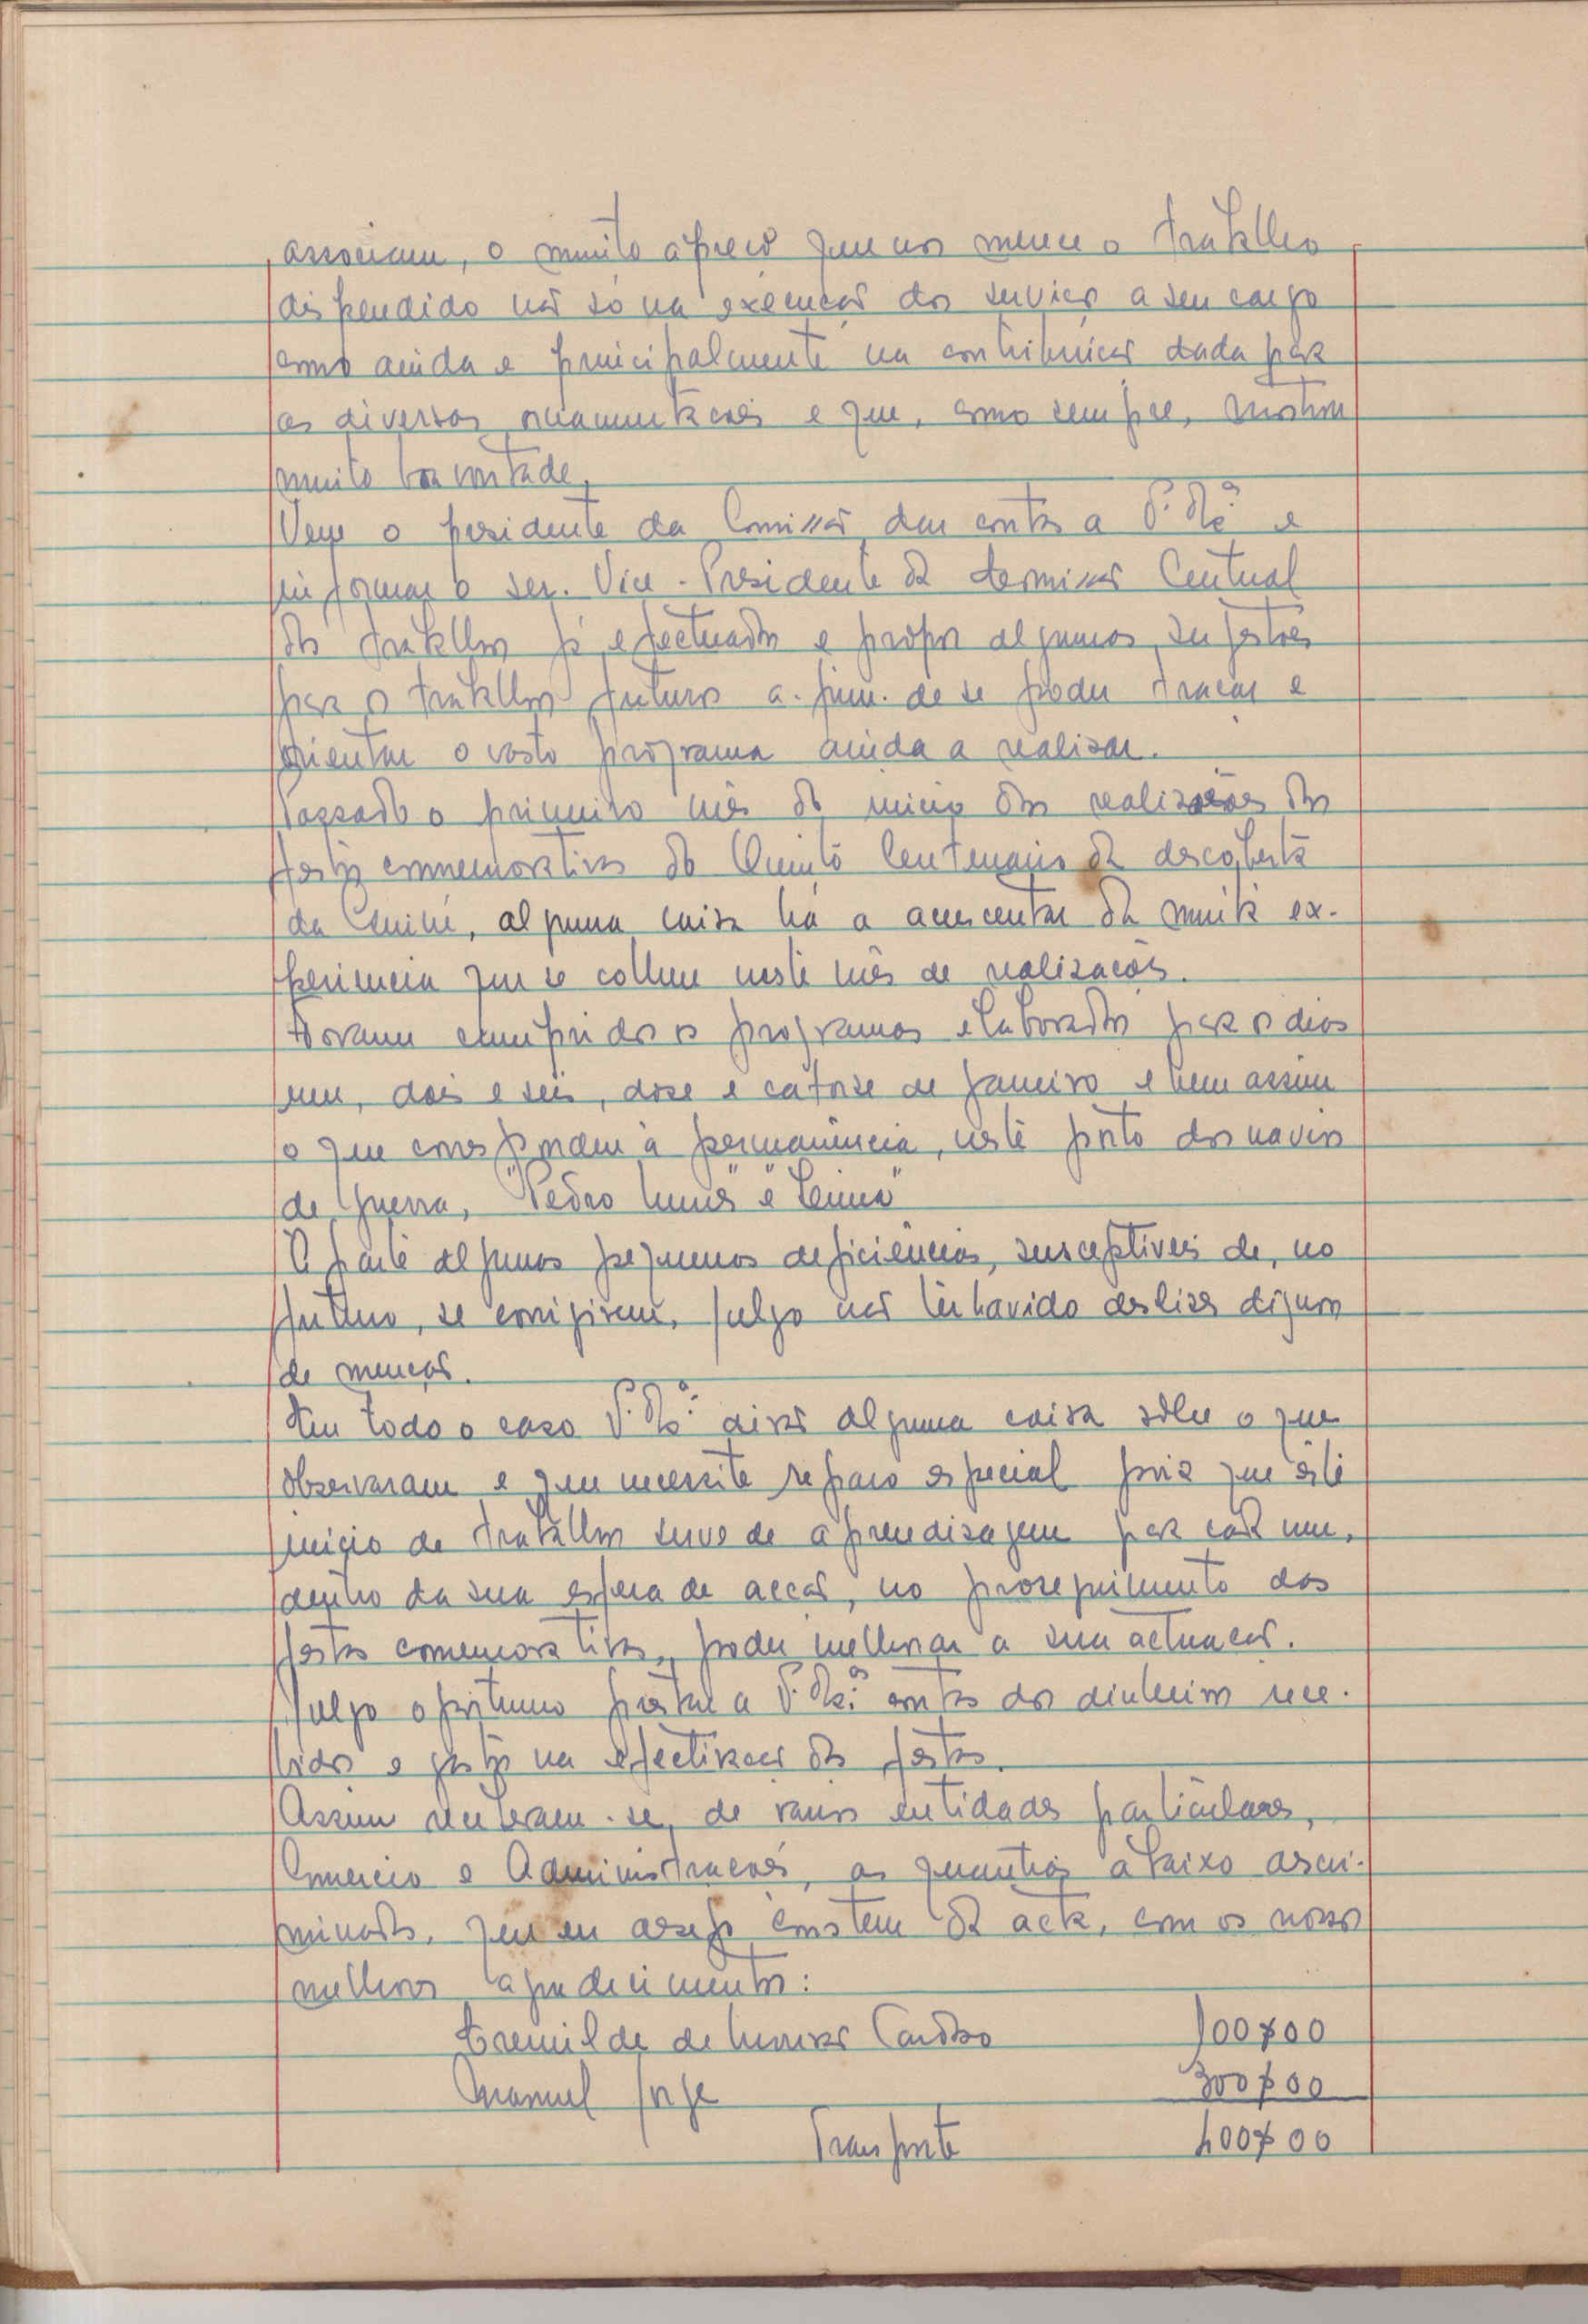 associam, o muito apreço que nos merece o trabalho
dispendido não só na execução dos serviços a seu cargo
como ainda e principalmente na contribuição dada para
as diversas ornamentações e que, como sempre, mostrou
muito boa vontade.
Vem o presidente da Comissão dar contas a V. Ex.ª e
informar o sr. Vice-Presidente da Comissão Central
dos trabalhos já efectuados e propor algumas sugestões
para os trabalhos futuros a-fim-de se poder traçar e
orientar o vasto programa ainda a realizar.
Passado o primeiro mês do inicio das realizações das
festas commemorativas do Quinto Centenario da descoberta
da Guiné, alguma coisa há a acrescentar da muita ex-
periencia que se colheu neste mês de realizações.
Foram cumpridos os programas elaborados para os dias
um, dois e seis, dose e catorse de Janeiro e bem assim
o que correspondeu à permanência, neste porto dos navios
de guerra, "Pedro Nunes" e "Lima"
À parte algumas pequenas deficiências, susceptiveis de, no
futuro, se corrigirem, julgo não ter havido deslises dignos
de menção.
Em todo o caso V. Ex.ªs dirão alguma coisa sôbre o que
observaram e que necessite reparo especial pois que êste
inicio de trabalhos serve de aprendisagem para cada um,
dentro da sua esfera de acção, no proseguimento das
festas comemorativas, poder melhorar a sua actuação.
Julgo oportuno prestar a V. Ex.ªs contas dos dinheiros rece-
bidos e gastos na efectivação das festas.
Assim receberam-se, de varias entidades particulares,
Comercio e Administrações, as quantias abaixo discri-
minadas, que eu desejo constem da acta, com os nossos
melhores agradecimentos:
de Menezes Cardoso 100$00
Manuel Jorge 300$00
Transporte 400$00